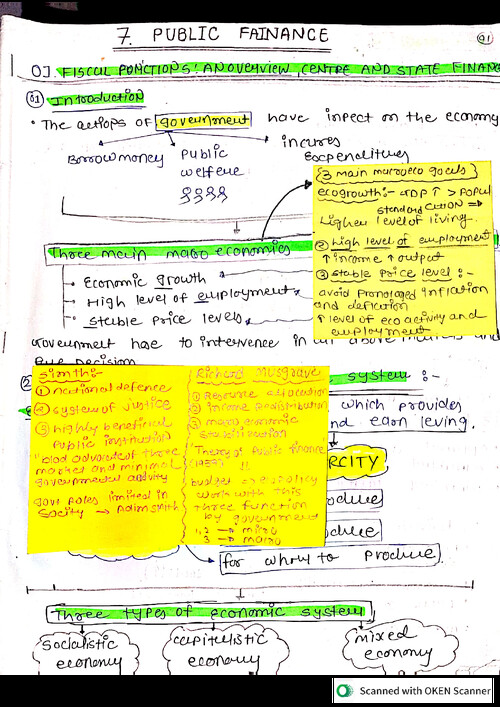 7. PUBLIC FAINANCE
01
01. FISCAL FONCTIONS: AN OVERVIEW, CENTRE AND STATE FINAN
01 Introduction
• The actions of government have inpect on the economy
Borrow money Public welfere incures Expenditures
{3 main macroeco goals}
ecogrowth:- GDP↑ > POPUL
standard
higher level of living.
② high level of employment
↑ income ↑ output
③ stable price level :-
avoid pronologed inflation
and deflation
↑ level of eco activity and
employment
Three main macro economics
Economic growth
High level of employment
stable price levels
Government have to intervence in
decision
system :-
which provides
and earn leving.
smith:-
① national defence
② system of justice
③ highly beneficial
public institution
market and minimal
governmental activity
Govt roles limited in
Socity → Adam smith
Richard Musgrave
① Resource allocation
② income redistribution
③ macro economic
stabilization
"Theory of public finance
(1959)"
budget → policy
work with this
three function
by government
1,2 → micro
3 → macro
RCITY
roduce
roduce
for whom to produce
Three types of economic system
Socialistic economy
capitalistic economy
mixed economy
Scanned with OKEN Scanner